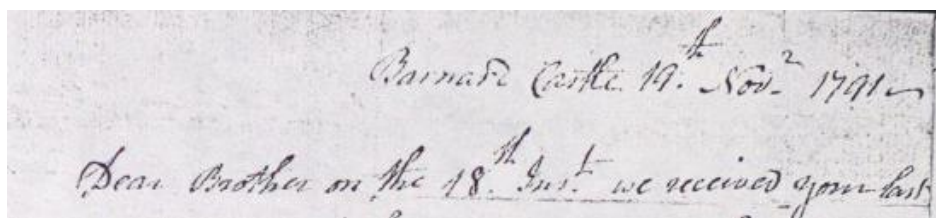 Barnard Castle 19.th Nov.r 1791
Dear Brother on the 18.th Inst. we received your last